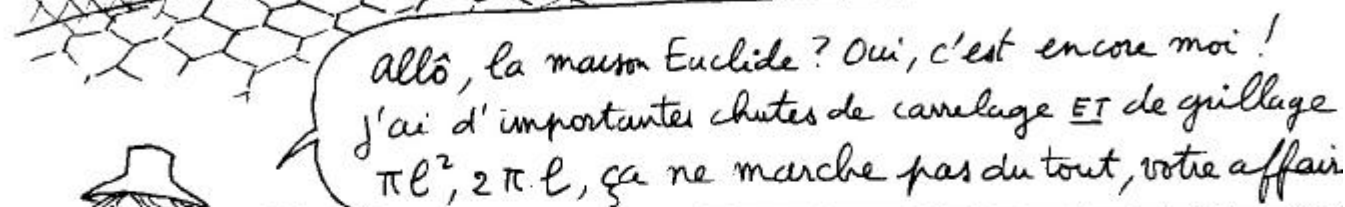 allô, la maison Euclide ? Oui, c'est encore moi !
j'ai d'importantes chutes de carrelage ET de grillage
πℓ², 2π.ℓ, ça ne marche pas du tout, votre affair